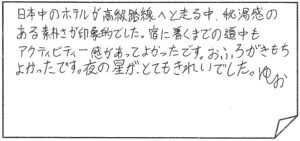 日本中のホテルが高級路線へと走る中、秘湯感の
ある素朴さが印象的でした。宿に着くまでの道中も
アクティビティー感があってよかったです。おふろがきもち
よかったです。夜の星が、とてもきれいでした。ゆお